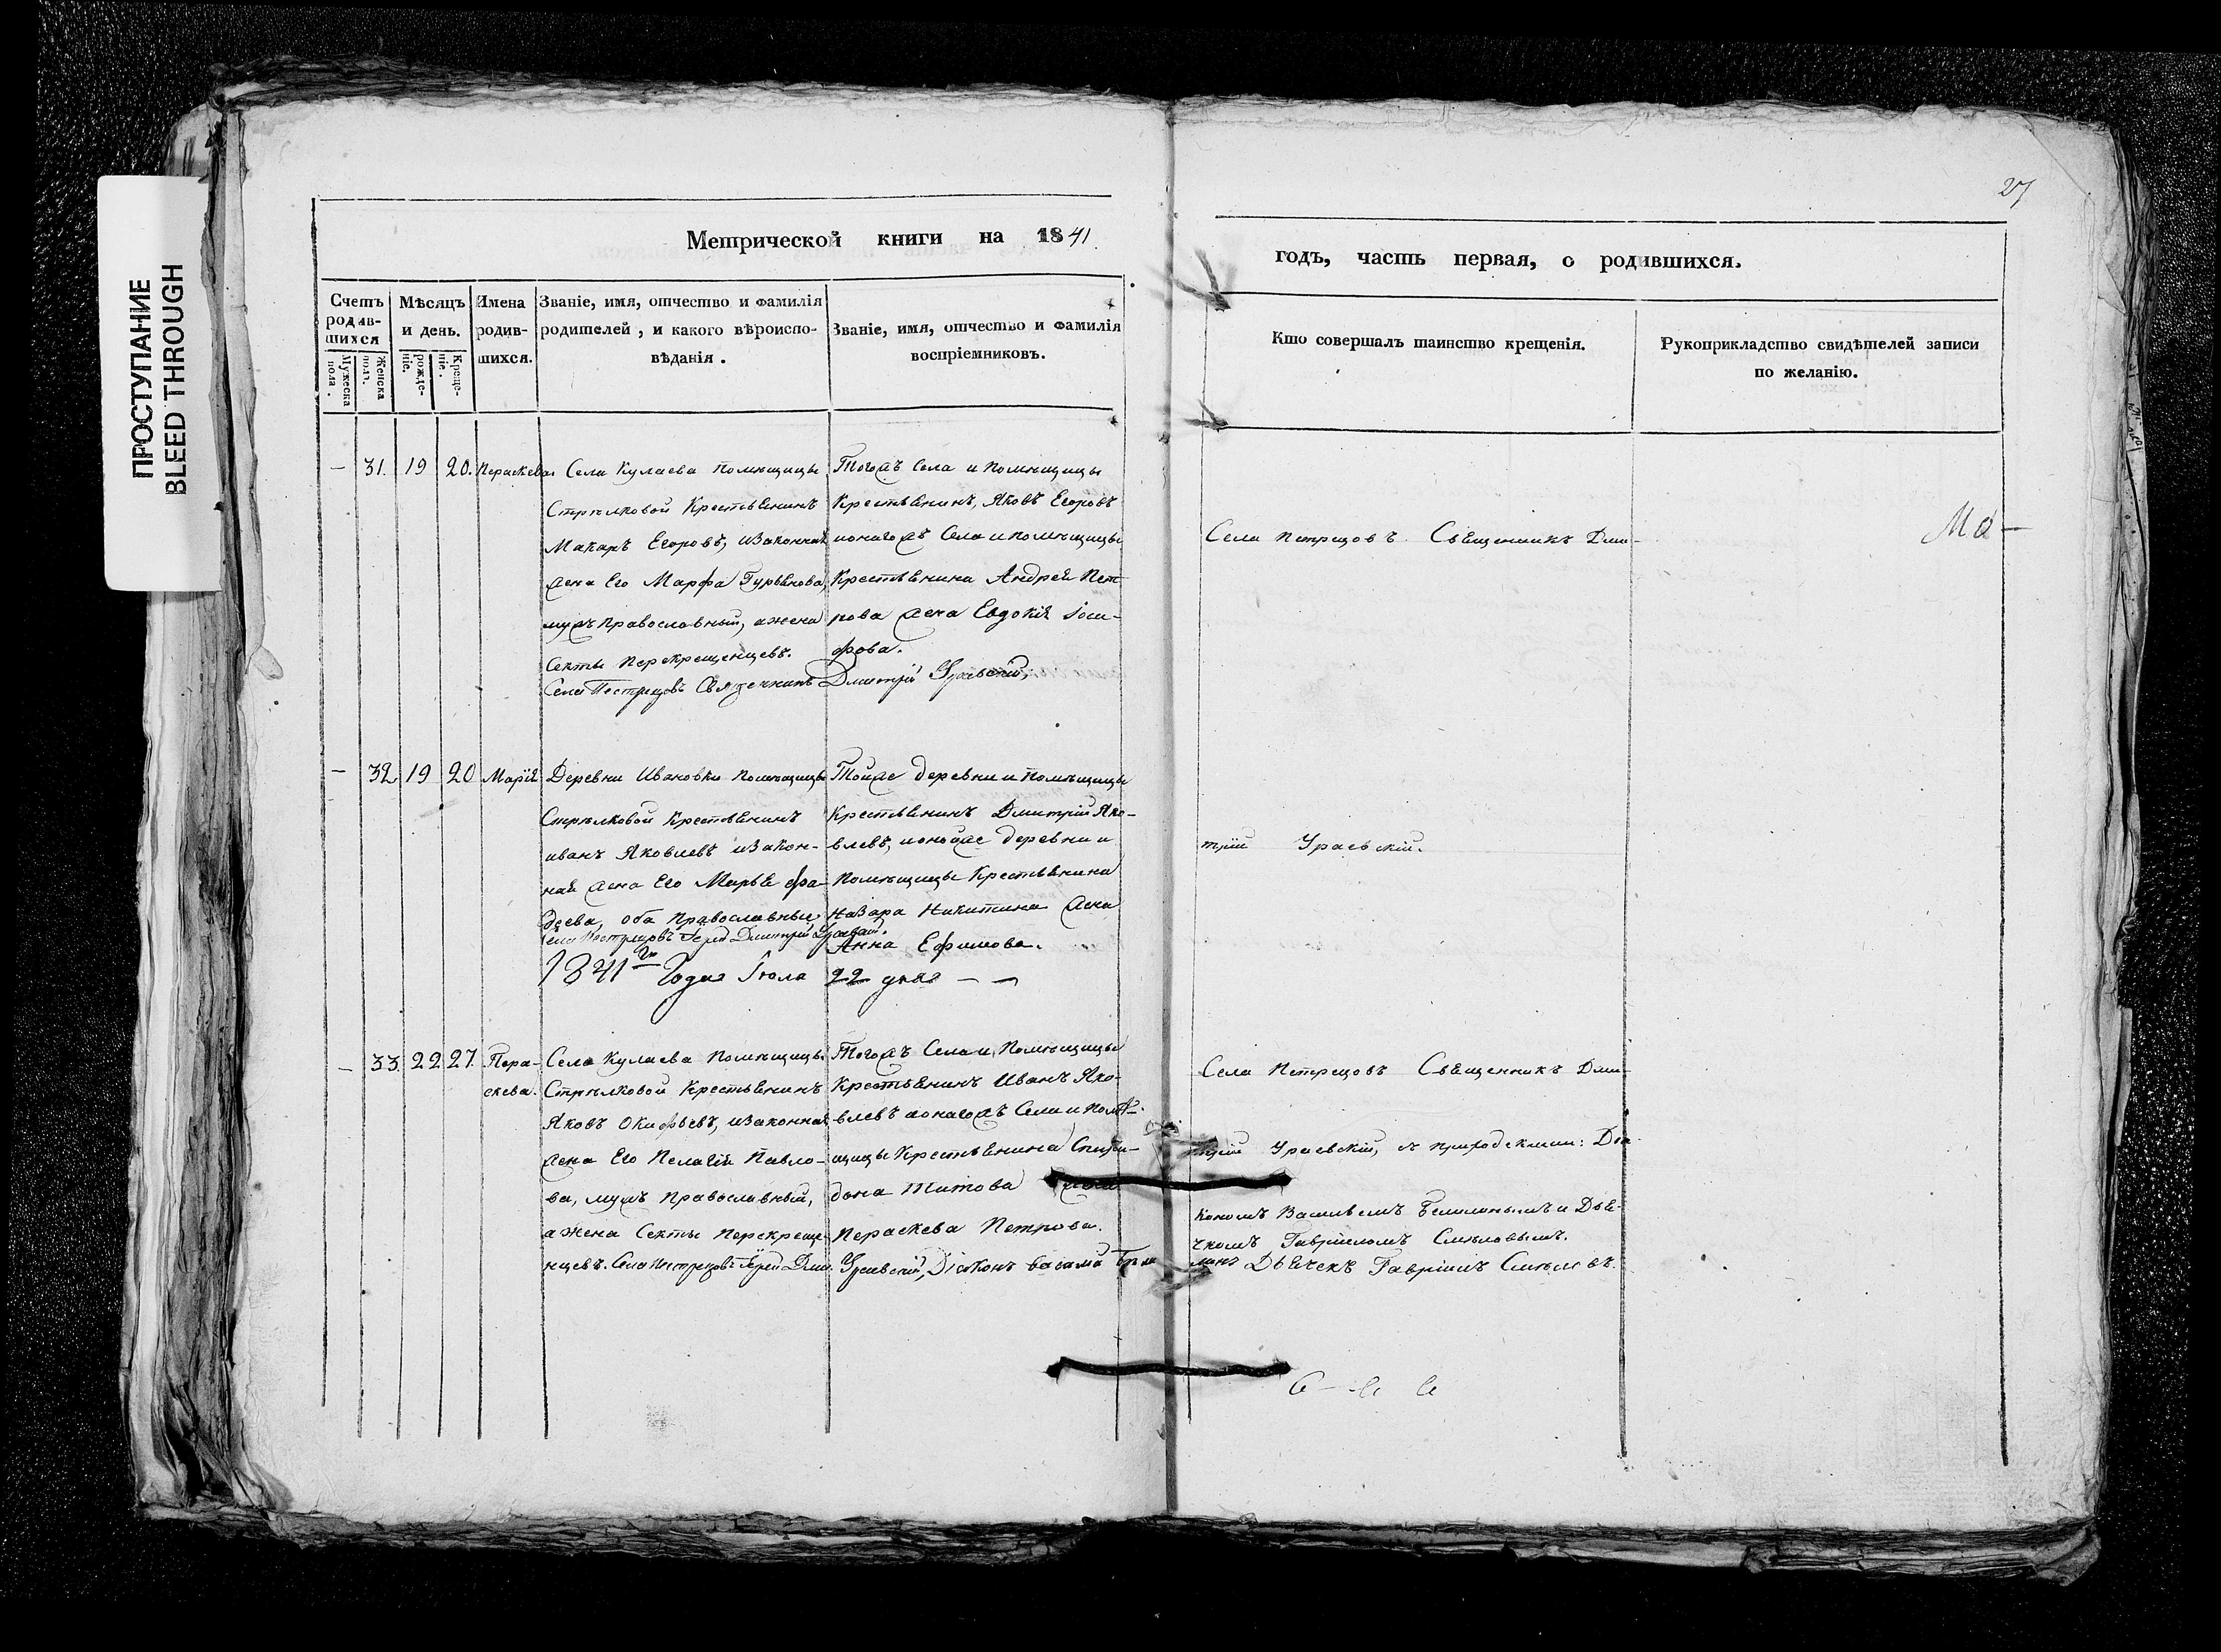 ПРОСТУПАНИЕ
BLEED THROUGH
27
Метрической книги на 1841.
годъ, часть первая, о родившихся.
Счетъ родив-шихся
Мужеска пола.
Женска полъ.
Мѣсяцъ и день.
рожде-ніе.
Креще-ніе.
Имена родив-шихся.
Званіе, имя, отчество и фамилія
родителей, и какого вѣроиспо-
вѣданія.
Званіе, имя, отчество и фамилія
воспріемниковъ.
Кто совершалъ таинство крещенія.
Рукоприкладство свидѣтелей записи
по желанію.
— 31. 19 20. Параскева
Села Кулаева помѣщицы
Стрѣлковой Крестьянинъ
Макаръ Егоровъ, изаконная
жена Его Марфа Гурьянова,
мужъ православный, ажена
Секты перекрещенцевъ.
Села Пестрецовъ Священникъ Дмитрій Ураевскій,
Тогожъ Села и Помѣщицы
Крестьянинъ, Яковъ Егоровъ
ионагожъ Села и помѣщицы
Крестьянина Андрея Пет-
рова жена Евдокія Іоси-
фова.
Села Пестрецовъ Священникъ Дми-
Ма—
— 32 19 20 Марія
Деревни Ивановки помѣщицы
Стрѣлковой Крестьянинъ
иванъ Яковлевъ изакон-
ная жена Его Марья фа-
дѣева, оба православные
Села Пестрецовъ Іерей Дмитрій Ураевскій.
1841го Года Іюля 22 дня — —
Тойже деревни и помѣщицы
Крестьянинъ Дмитрій Яко-
влевъ, ионойже деревни и
Помѣщицы Крестьянина
Назара Никитина жена
Анна Ефимова.
трій Ураевскій.
— 33. 22 27. Пара-
скева.
Села Кулаева помѣщицы
Стрѣлковой Крестьянинъ
Яковъ Окифьевъ, изаконная
жена Его Пелагія Павло-
ва, мужъ Православный,
ажена Секты Перекреще-
нцевъ. Села Пестрецовъ Іерей Дми. Ураевскій, Діаконъ
Тогожъ Села и, Помѣщицы
Крестьянинъ Иванъ Яко-
влевъ аонагожъ Села и помѣ-
щицы Крестьянина Спири-
дона Титова жена
Параскева Петрова.
Села Пестрецовъ Священникъ Дми-
трій Ураевскій, съ приходскими: Діа-
кономъ Васильемъ и Дья-
чкомъ Гавріиломъ Смѣловымъ.
Дьячекъ Гавріилъ Смѣловъ.